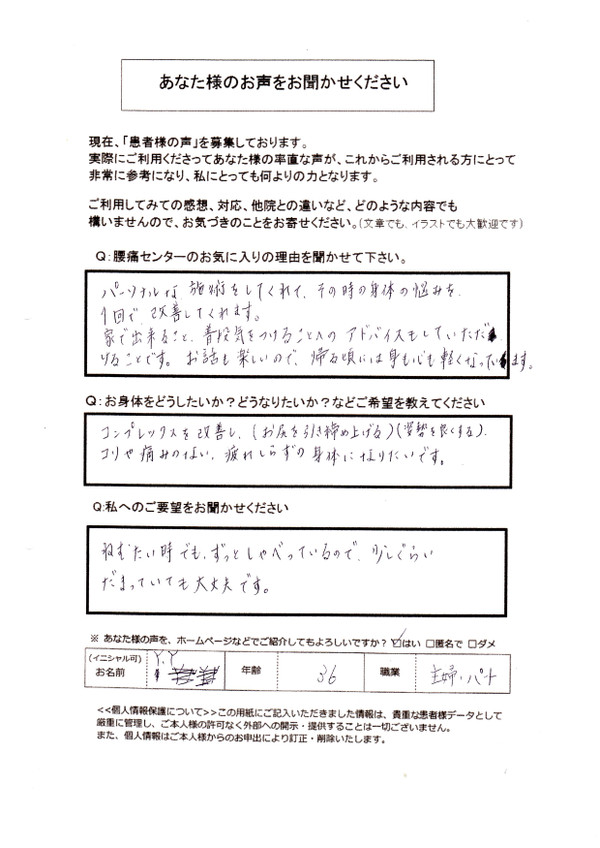 あなた様のお声をお聞かせください
現在、「患者様の声」を募集しております。
実際にご利用くださってあなた様の率直な声が、これからご利用される方にとって
非常に参考になり、私にとっても何よりの力となります。
ご利用してみての感想、対応、他院との違いなど、どのような内容でも
構いませんので、お気づきのことをお寄せください。(文章でも、イラストでも大歓迎です)
Q:腰痛センターのお気に入りの理由を聞かせて下さい。
パーソナルな施術をしてくれて、その時の身体の悩みを
1回で改善してくれます。
家で出来ること、普段気をつけることへのアドバイスもしていただ
けることです。お話も楽しいので、帰る頃には身も心も軽くなっています。
Q:お身体をどうしたいか?どうなりたいか?などご希望を教えてください
コンプレックスを改善し、(お尻を引き締め上げる)(姿勢を良くする)
コリや痛みのない、疲れしらずの身体になりたいです。
Q:私へのご要望をお聞かせください
ねむたい時でも、ずっとしゃべっているので、少しぐらい
だまっていても大丈夫です。
※ あなた様の声を、ホームページなどでご紹介してもよろしいですか?☑はい □匿名で □ダメ
(イニシャル可) お名前 Y.Y 年齢 36 職業 主婦・パート
<<個人情報保護について>>この用紙にご記入いただきました情報は、貴重な患者様データとして
厳重に管理し、ご本人様の許可なく外部への開示・提供することは一切ございません。
また、個人情報はご本人様からのお申出により訂正・削除いたします。